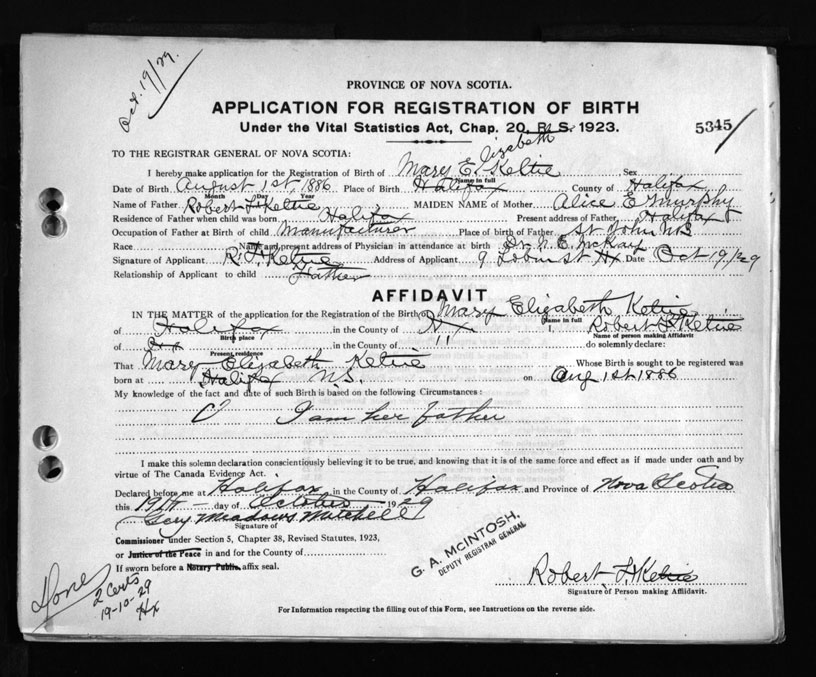 Oct. 19/29.
PROVINCE OF NOVA SCOTIA.
APPLICATION FOR REGISTRATION OF BIRTH
Under the Vital Statistics Act, Chap. 20, R. S. 1923.
5345
TO THE REGISTRAR GENERAL OF NOVA SCOTIA:
I hereby make application for the Registration of Birth of Mary Elizabeth Keltie Sex
Name in full
Date of Birth August 1st, 1886 Place of Birth Halifax County of Halifax
Month Day Year
Name of Father Robert Keltie MAIDEN NAME of Mother Alice E Murphy
Residence of Father when child was born Halifax Present address of Father Halifax
Occupation of Father at Birth of child Manufacturer Place of birth of Father St John NB
Race Name and present address of Physician in attendance at birth Dr. N. E. McKay
Signature of Applicant R. Keltie Address of Applicant 9 St Hx Date Oct 19/29
Relationship of Applicant to child Father
AFFIDAVIT
IN THE MATTER of the application for the Registration of the Birth of Mary Elizabeth Keltie
Name in full
of Halifax in the County of Hx I, Robert Keltie
Birth place Name of person making Affidavit
of Hx in the County of " do solemnly declare:
Present residence
That Mary Elizabeth Keltie Whose Birth is sought to be registered was
born at Halifax N.S. on Aug 1st 1886
My knowledge of the fact and date of such Birth is based on the following Circumstances:
I am her father
I make this solemn declaration conscientiously believing it to be true, and knowing that it is of the same force and effect as if made under oath and by
virtue of The Canada Evidence Act.
Declared before me at Halifax in the County of Halifax and Province of Nova Scotia
this 19th day of October 1929
Geo Meadows Mitchell
Signature of
Commissioner under Section 5, Chapter 38, Revised Statutes, 1923,
or Justice of the Peace in and for the County of
If sworn before a Notary Public, affix seal.
G. A. MCINTOSH,
DEPUTY REGISTRAR GENERAL
Robert Keltie
Signature of Person making Affidavit.
Done
2 Certs
19-10-29
Hx
For Information respecting the filling out of this Form, see Instructions on the reverse side.